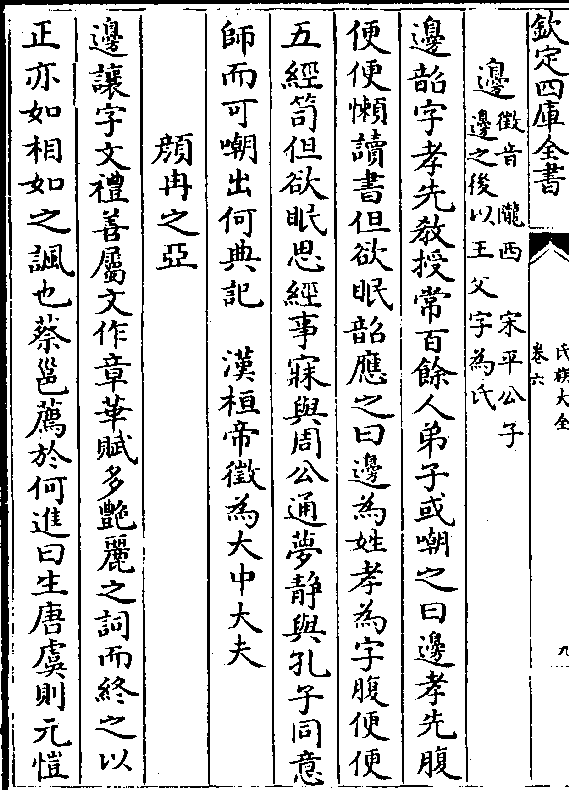 欽定四庫全書
氏族大全
卷六
九
邊
徵音　隴西　宋平公子
邊之後以王父字為氏
邊韶字孝先教授常百餘人弟子或嘲之曰邊孝先腹
便便懶讀書但欲眠韶應之曰邊為姓孝為字腹便便
五經笥但欲眠思經事寐與周公通夢靜與孔子同意
師而可嘲出何典記　漢桓帝徵為大中大夫
顔冉之亞
邊讓字文禮善屬文作章華賦多艷麗之詞而終之以
正亦如相如之諷也蔡邕薦於何進曰生唐虞則元愷